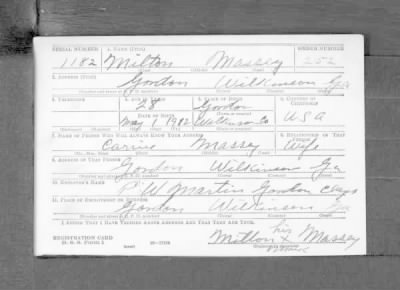 SERIAL NUMBER 1. NAME (Print) ORDER NUMBER
1182 Milton Massey 252
(First) (Middle) (Last)
2. ADDRESS (Print)
Gordon Wilkinson Ga
(Number and street or R. F. D. number) (Town) (County) (State)
3. TELEPHONE 4. AGE IN YEARS 5. PLACE OF BIRTH 6. COUNTRY OF CITIZENSHIP
28 Gordon
(Town or county)
DATE OF BIRTH
May 1 1912 Wilkinson Co USA
(Exchange) (Number) (Mo.) (Day) (Yr.) (State or country)
7. NAME OF PERSON WHO WILL ALWAYS KNOW YOUR ADDRESS 8. RELATIONSHIP OF THAT PERSON
Carrie Massey Wife
(Mr., Mrs., Miss) (First) (Middle) (Last)
9. ADDRESS OF THAT PERSON
Gordon Wilkinson Ga
(Number and street or R. F. D. number) (Town) (County) (State)
10. EMPLOYER'S NAME
P. W. Martin Gordon Clays
11. PLACE OF EMPLOYMENT OR BUSINESS
Gordon Wilkinson Ga
(Number and street or R. F. D. number) (Town) (County) (State)
I AFFIRM THAT I HAVE VERIFIED ABOVE ANSWERS AND THAT THEY ARE TRUE.
his
REGISTRATION CARD Milton x Massey
D. S. S. Form 1 (over) mark